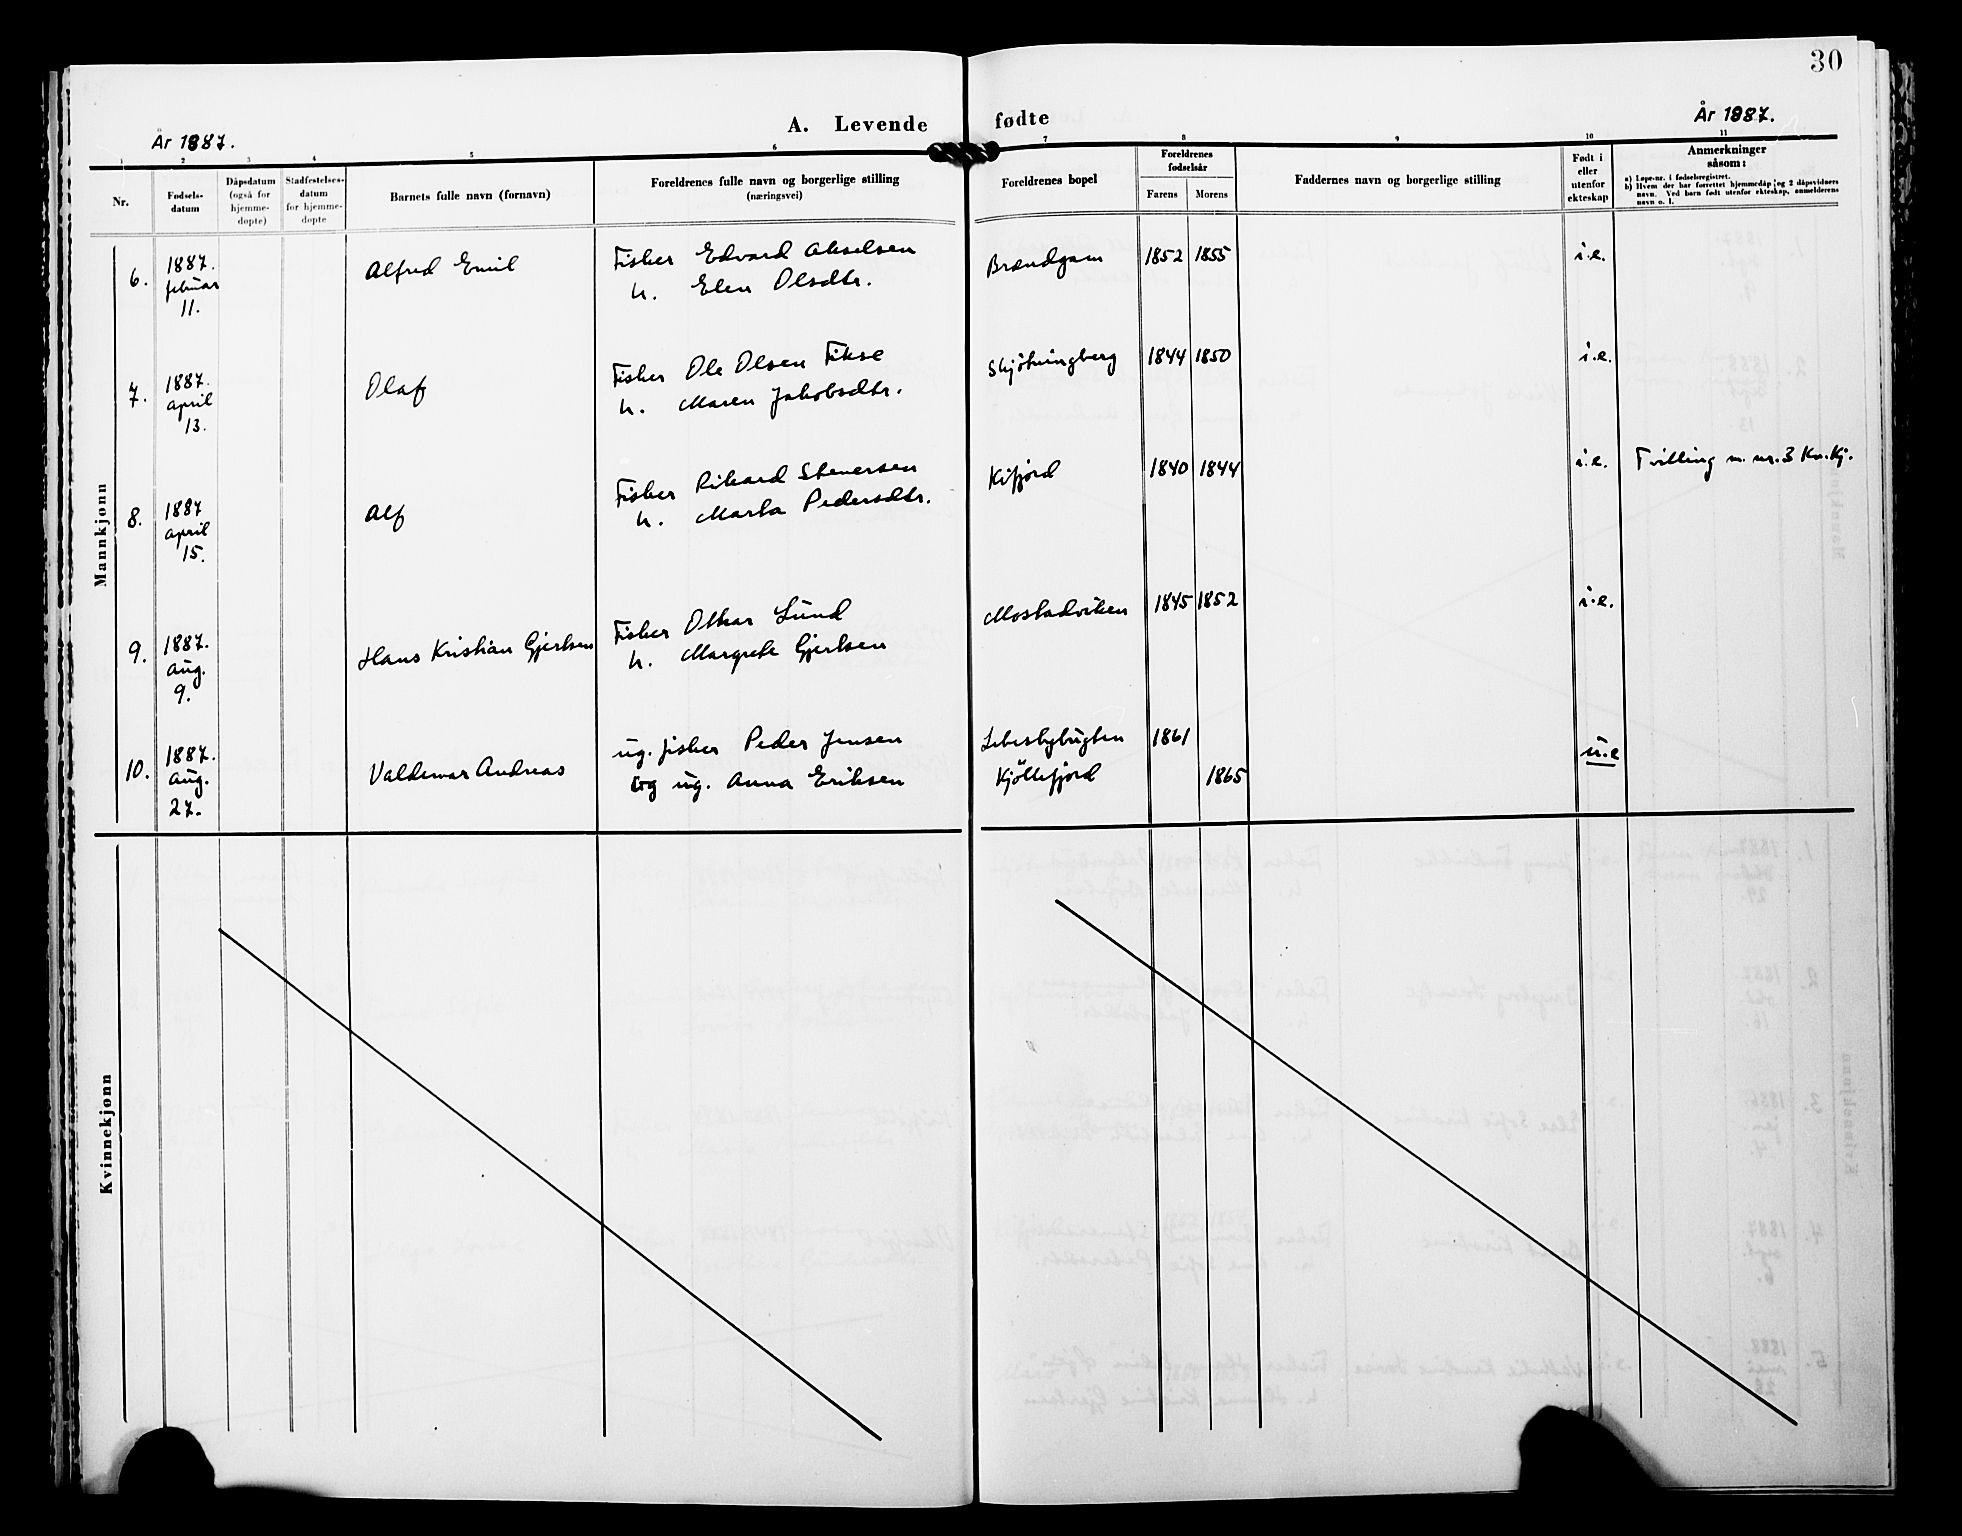 30
År 1887.
A. Levende fødte
År 1887.
1 2 3 4 5 6 7 8 9 10 11
Nr.
Fødsels-
datum
Dåpsdatum
(også for
hjemme-
døpte)
Stadfestelses-
datum
for hjemme-
døpte
Barnets fulle navn (fornavn)
Foreldrenes fulle navn og borgerlige stilling
(næringsvei)
Foreldrenes bopel
Foreldrenes
fødselsår
Farens Morens
Faddernes navn og borgerlige stilling
Født i
eller
utenfor
ekteskap
Anmerkninger
såsom:
a) Løpe-nr. i fødselsregistret.
b) Hvem der har forrettet hjemmedåp og 2 dåpsvidners
navn. Ved barn født utenfor ekteskap, anmelderens
navn o. l.
Mannkjønn
6. 1887. Alfred Emil Fisker Edvard Akselsen Brændgam 1852 1855 i.e.
februar h. Elen Olsdtr.
11.
7. 1887. Olaf Fisker Ole Olsen Fikse Skjøtningberg 1844 1850 i.e.
april h. Maren Jakobsdtr.
13.
8. 1887 Alf Fisker Rikard Stenersen Kifjord 1840 1844 i.e. Tvilling m. nr. 3 Kv.kj.
april h. Marta Pedersdtr.
15.
9. 1887. Hans Kristian Gjertsen Fisker Otkar Lund Mostadviken 1845 1852 i.e.
aug. h. Margrete Gjertsen
9.
10. 1887. Valdemar Andreas ug. fisker Peder Jensen Lebesbybugten 1861 u.e
aug. og ug. Anna Eriksen Kjøllefjord 1865
27.
Kvinnekjønn